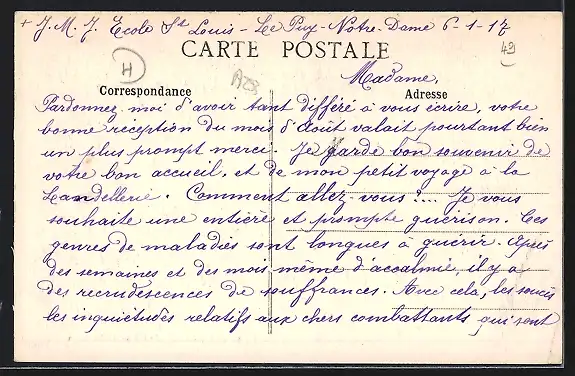 + J. M. J. Ecole St Louis - Le Puy - Notre-Dame 6-1-17
49
CARTE POSTALE
H
Madame,
Correspondance
Adresse
Pardonnez-moi d'avoir tant différé à vous écrire, votre
bonne réception du mois d'Août valait pourtant bien
un plus prompt merci. Je garde bon souvenir de
votre bon accueil, et de mon petit voyage à la
Landellerie. Comment allez-vous?... Je vous
souhaite une entière et prompte guérison. Ces
genres de maladies sont longues à guérir. Après
des semaines et des mois même d'accalmie, il y a
des recrudescences de souffrances. Avec cela, les soucis
les inquiétudes relatifs aux chers combattants qui sont